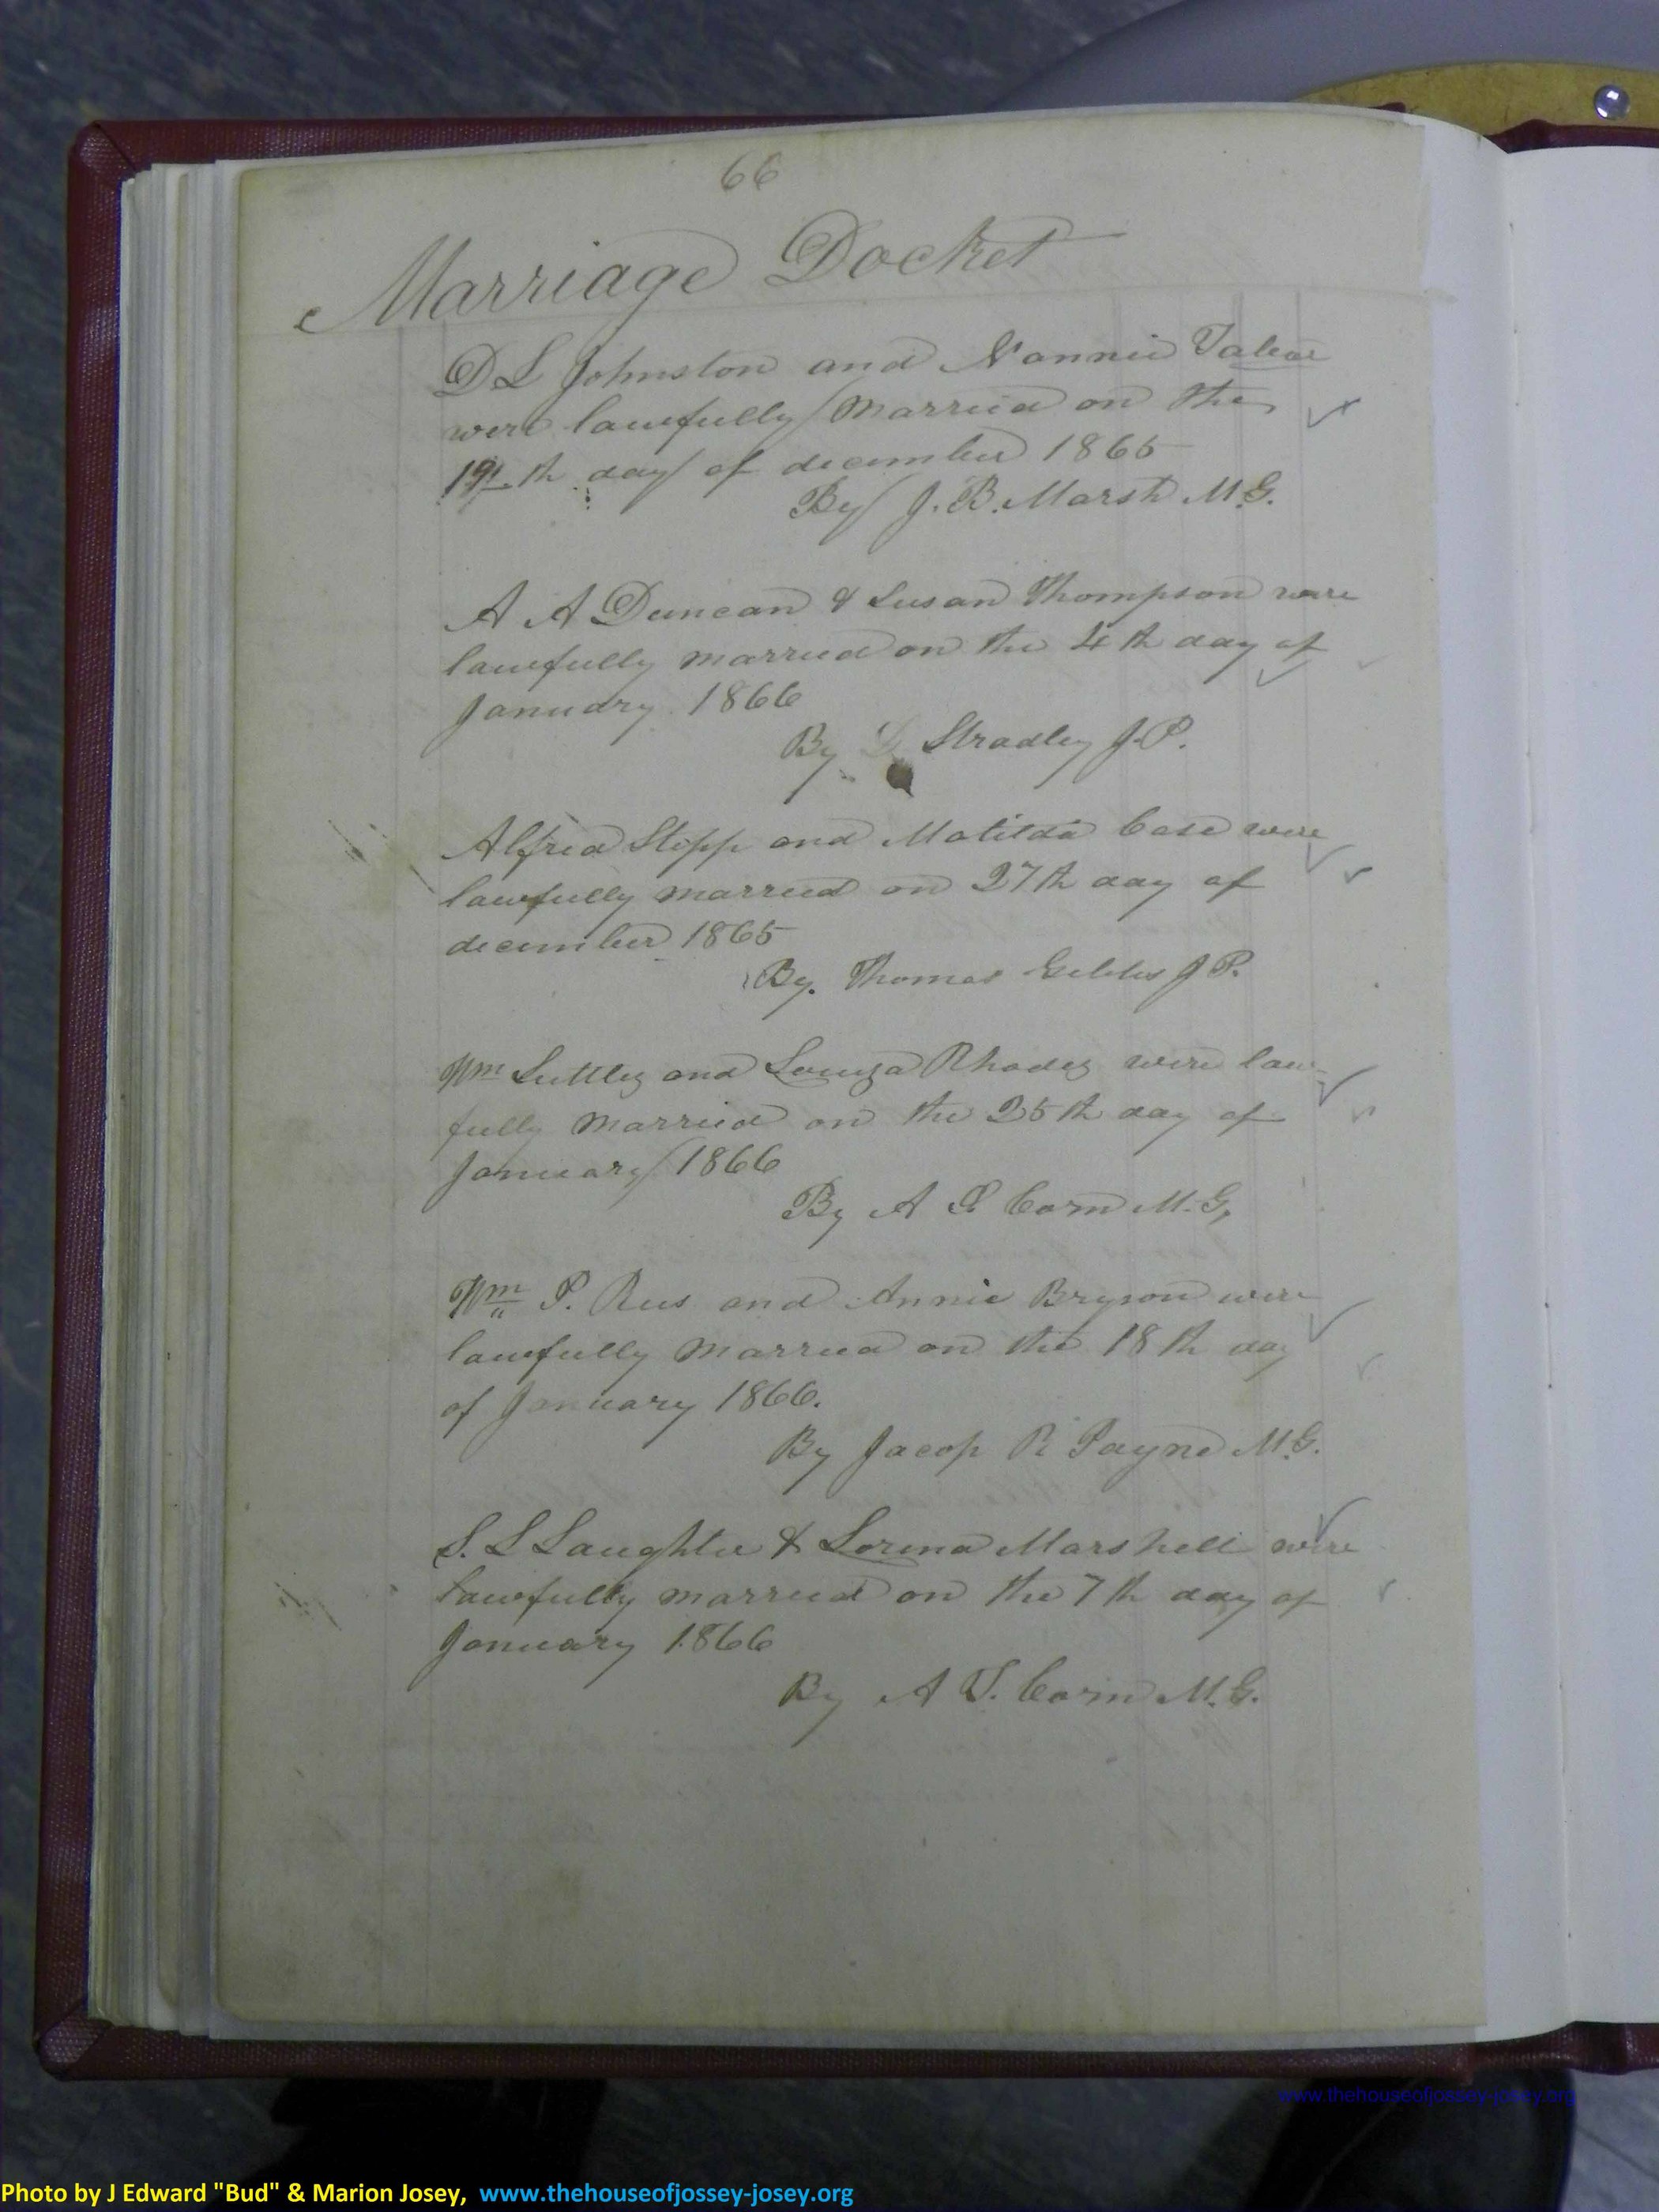 66
Marriage Docket
D L Johnston and Nannie
were lawfully married on the
19th day of december 1865
By J. B. Marsh M.G.
A A Duncan & Susan Thompson were
lawfully married on the 4th day of
January 1866
By Stradley J.P.
Alfred Stepp and Matilda Case were
lawfully married on 27th day of
december 1865
By. Thomas J P.
Wm Suttley and Louiza Rhodes were law-
fully married on the 25th day of
January 1866
By A Corn M.G,
Wm P. and Annie Bryson were
lawfully married on the 18th day
of January 1866.
By Jacop R Payne M.G.
S. L Laughter & Lorena Marshell were
lawfully married on the 7th day of
January 1866
By A Corn M.G.
www.thehouseofjossey-josey.org
Photo by J Edward "Bud" & Marion Josey, www.thehouseofjossey-josey.org